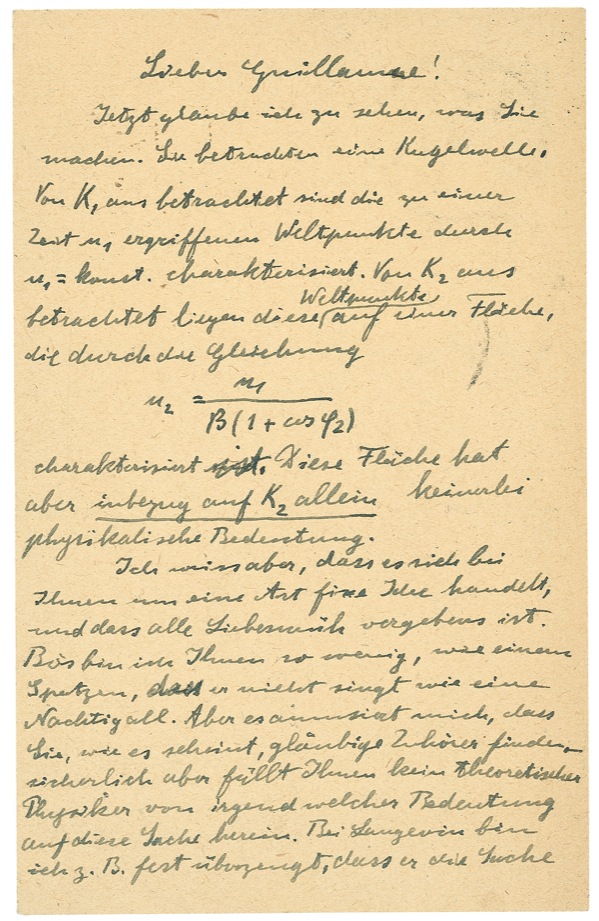 Lieber Guillaume!
Jetzt glaube ich zu sehen, was Sie
machen. Sie betrachten eine Kugelwelle.
Von K₁ aus betrachtet sind die zu einer
Zeit u₁ ergriffenen Weltpunkte durch
u₁ = konst. charakterisiert. Von K₂ aus
betrachtet liegen diese Weltpunkte auf einer Fläche,
die durch die Gleichung
u₂ = u₁ / B(1 + cos φ₂)
charakterisiert ist. Diese Fläche hat
aber inbezug auf K₂ allein keinerlei
physikalische Bedeutung.
Ich weiss aber, dass es sich bei
Ihnen um eine Art fixe Idee handelt,
und dass alle Liebesmüh vergebens ist.
Bös bin ich Ihnen so wenig, wie einem
Spatzen, dass er nicht singt wie eine
Nachtigall. Aber es amusiert mich, dass
Sie, wie es scheint, gläubige Zuhörer finden,
sicherlich aber fällt Ihnen kein theoretischer
Physiker von irgend welcher Bedeutung
auf diese Sache herein. Bei Langevin bin
ich z. B. fest überzeugt, dass er die Sache